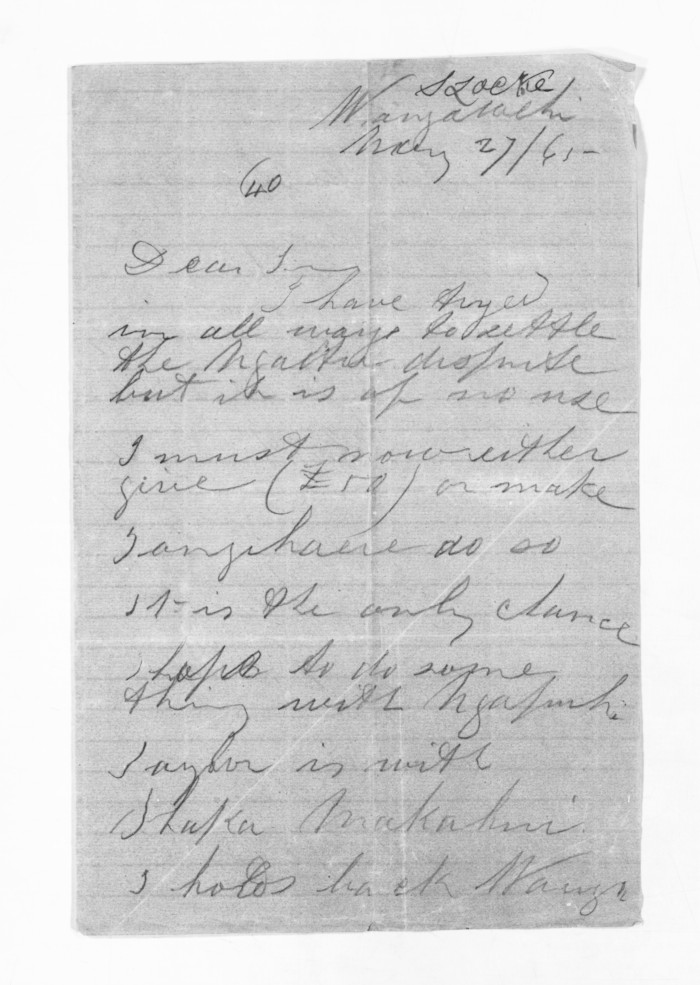 S Locke
May 27/65
40
Dear Sir
I have tryed
in all ways to settle
the dispute
but it is of no use
I must now either
give (£50) or make
do so
It is the only chance
I hope to do some
thing with Ngapuhi
Taylor is with
I holds back